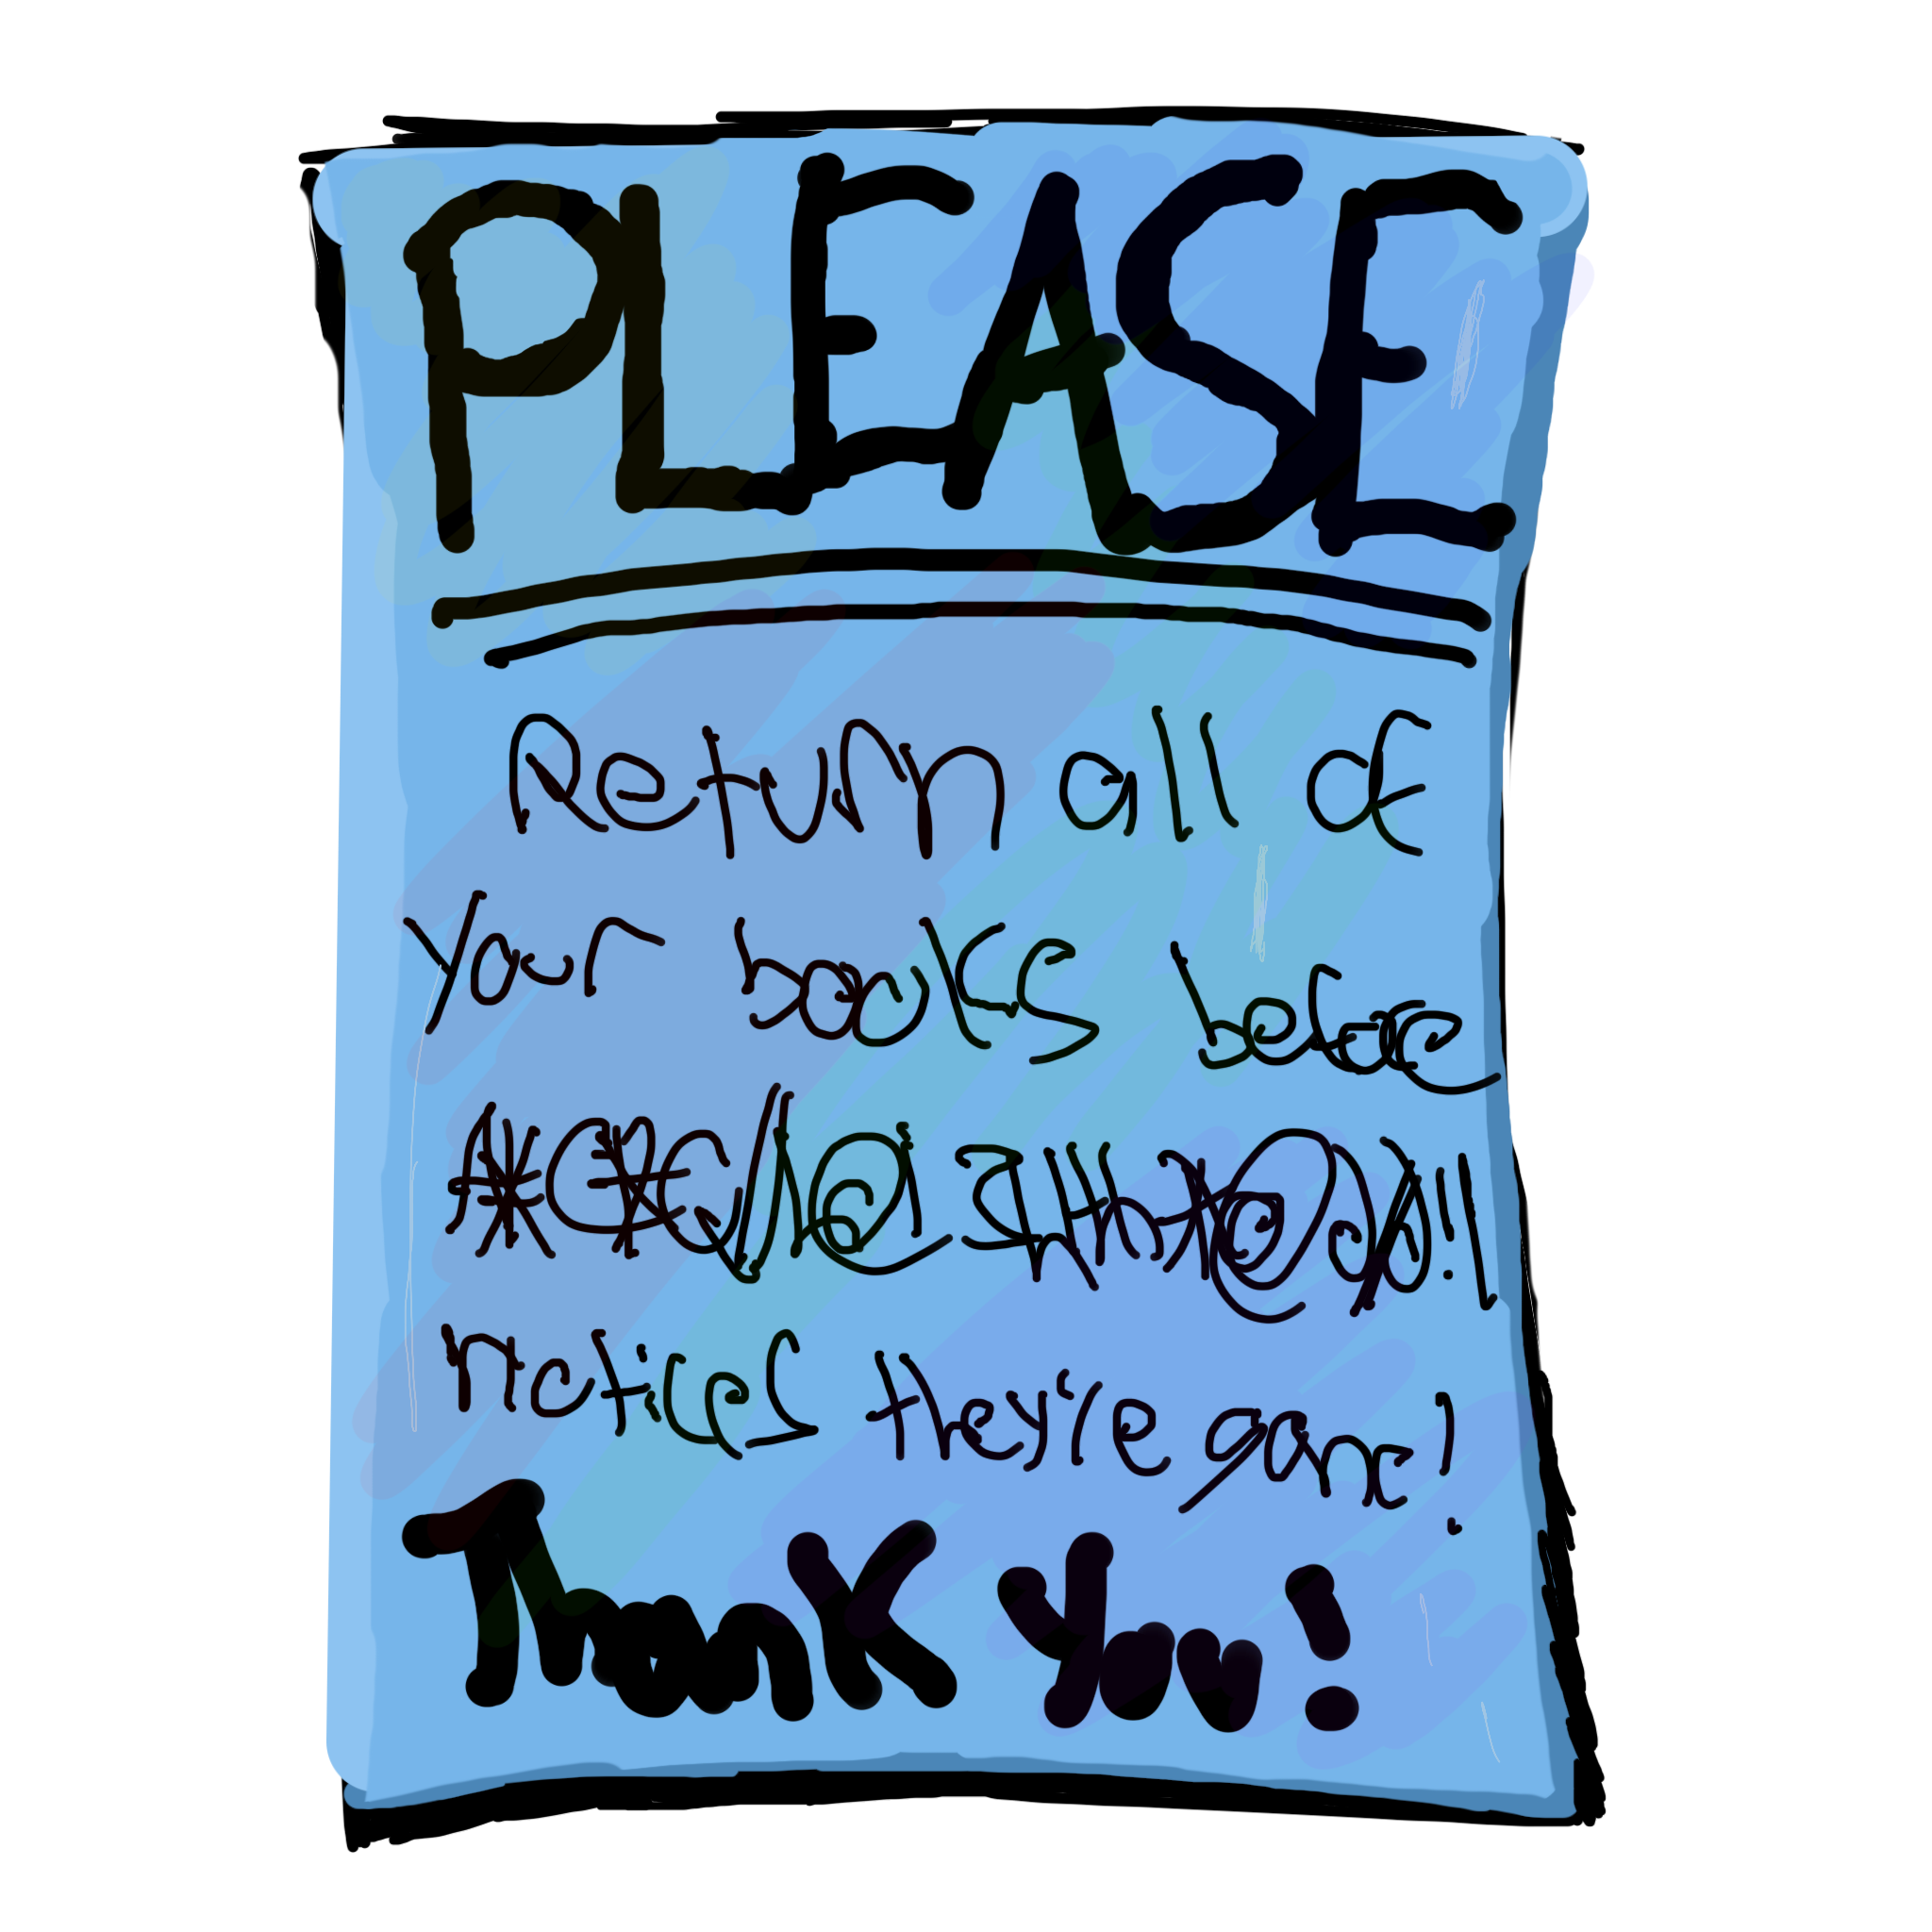 PLEASE
Return all of
your books before
notices they're gone!
Thank You!